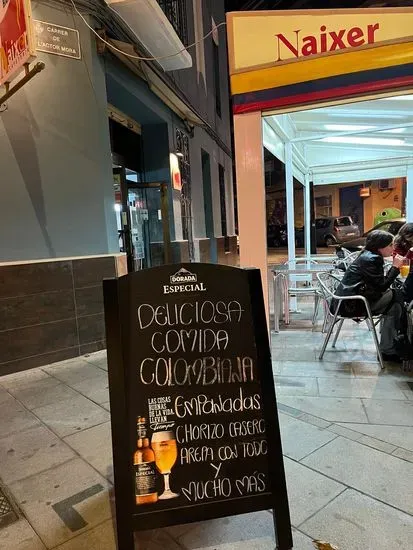 CARRER
DE L'ACTOR MORA
Naixer
DORADA
ESPECIAL
DELICIOSA
COMIDA
COLOMBIANA
LAS COSAS
BUENAS
DE LA VIDA,
LLEVAN
Tiempo
EMPANADAS
CHORIZO CASERO
AREPA CON TODO
Y
MUCHO MÁS